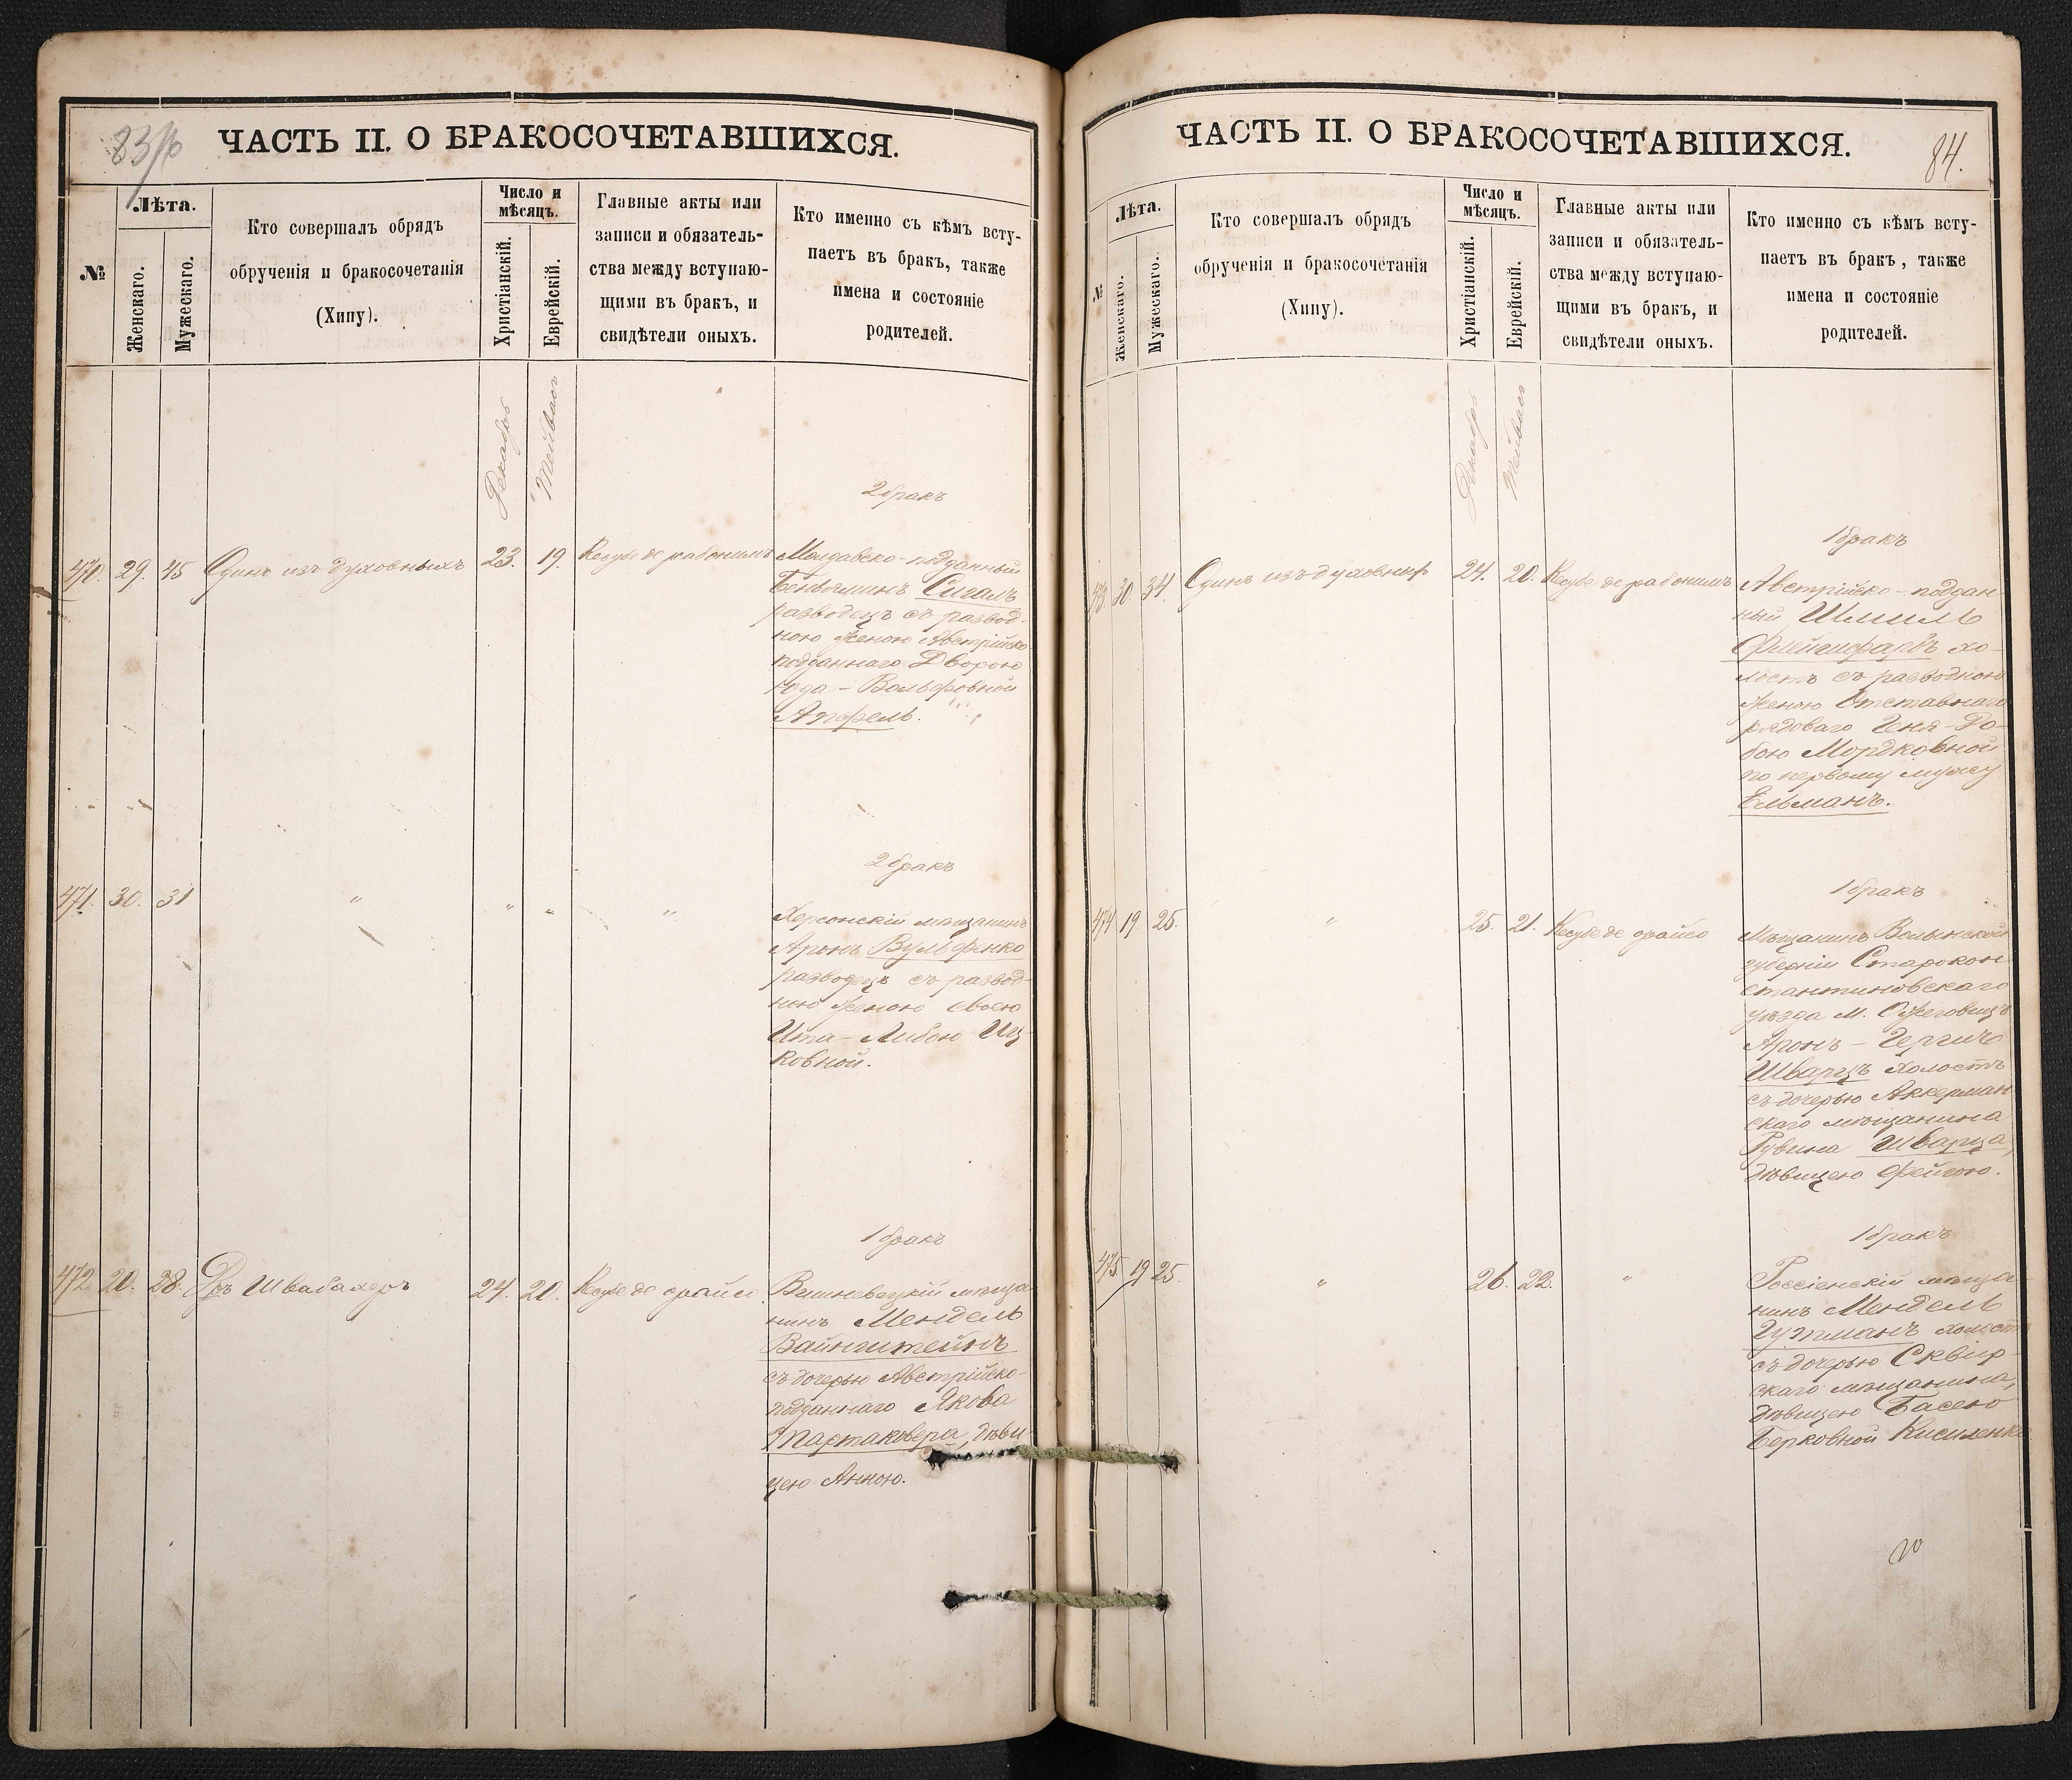 83/б
ЧАСТЬ II. О БРАКОСОЧЕТАВШИХСЯ.
№
Лѣта.
Женскаго.
Мужескаго.
Кто совершалъ обрядъ
обрученія и бракосочетанія
(Хипу).
Число и
мѣсяцъ.
Христіанскій.
Еврейскій.
Главные акты или
записи и обязатель-
ства между вступаю-
щими въ бракъ, и
свидѣтели оныхъ.
Кто именно съ кѣмъ всту-
паетъ въ бракъ, также
имена и состояніе
родителей.
Декабрь
Тейвасъ
2 бракъ
470. 29. 45 Одинъ изъ духовныхъ 23. 19. Кесубе де рабонимъ
Молдавско-подданный
Беньяминъ Сигалъ
разводецъ съ развод-
ною женою Австрійско
подданнаго Дворою
Года-Вольфовной
Апфель.
2 бракъ
471. 30. 31 " " " "
Херсонскій мѣщанинъ
Аронъ Вульфенко
разводецъ съ развод-
ною женою своею
Ита-Либою Иц-
ковной.
1 бракъ
472 20. 28. Дръ Швабахеръ 24. 20. Кесубе де орайсо.
Вишневецкій мѣща-
нинъ Мендель
Вайнштейнъ
съ дочерью Австрійско-
подданнаго Якова
Мартаковера, дѣви-
цею Анною.
84.
ЧАСТЬ II. О БРАКОСОЧЕТАВШИХСЯ.
№
Лѣта.
Женскаго.
Мужескаго.
Кто совершалъ обрядъ
обрученія и бракосочетанія
(Хипу).
Число и
мѣсяцъ.
Христіанскій.
Еврейскій.
Главные акты или
записи и обязатель-
ства между вступаю-
щими въ бракъ, и
свидѣтели оныхъ.
Кто именно съ кѣмъ всту-
паетъ въ бракъ, также
имена и состояніе
родителей.
Декабрь
Тейвасъ
1 бракъ
473 30 34. Одинъ изъ духовныхъ 24. 20. Кесубе де рабонимъ
Австрійско-поддан-
ный Шмиль
Флейшфарбъ хо-
лостъ съ разводною
женою Отставнаго
рядоваго Геня-До-
бою Мордковной
по первому мужу
Ельманъ.
1 бракъ
474 19. 25. " 25. 21. Кесубе де орайсо
Мѣщанинъ Волынской
губерніи Старокон-
стантиновскаго
уѣзда М. Ожеговицъ
Аронъ-Гершъ
Шварцъ холостъ
съ дочерью Аккерман
скаго мѣщанина
Рувина Шварца,
дѣвицею Фейгою.
1 бракъ
475 19 25. " 26. 22. "
Россіенскій мѣща-
нинъ Мендель
Гутманъ холостъ
съ дочерью Сквир-
скаго мѣщанина,
дѣвицею Басею
Берковной Кисиленко